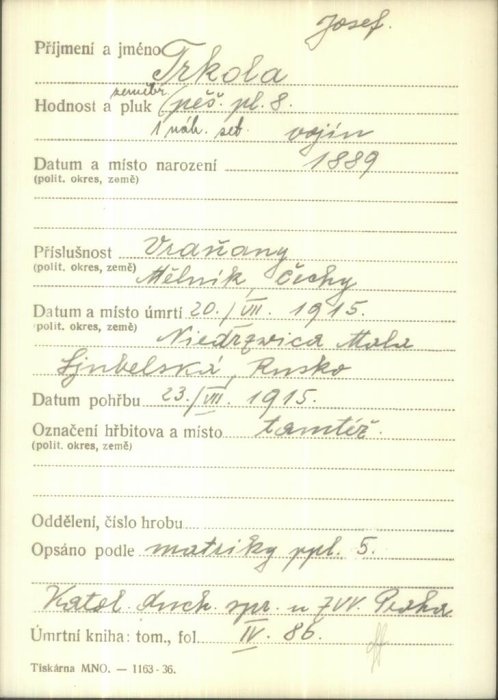 Josef.
Příjmení a jméno Trkola
zeměbr.
Hodnost a pluk pěš. pl. 8.
1 náh. set. vojín
Datum a místo narození 1889
(polit. okres, země)
Příslušnost Vraňany
(polit. okres, země) Mělník, Čechy
Datum a místo úmrtí 20./VII. 1915.
polit. okres, země)
Niedrzwica Mala
Ljubelská, Rusko
Datum pohřbu 23./VII. 1915.
Označení hřbitova a místo tamtéž.
(polit. okres, země)
Oddělení, číslo hrobu
Opsáno podle matriky ppl. 5.
Katol. duch. spr. u ZVV. Praha
Úmrtní kniha: tom., fol. IV. 86.
Tiskárna MNO. — 1163-36.